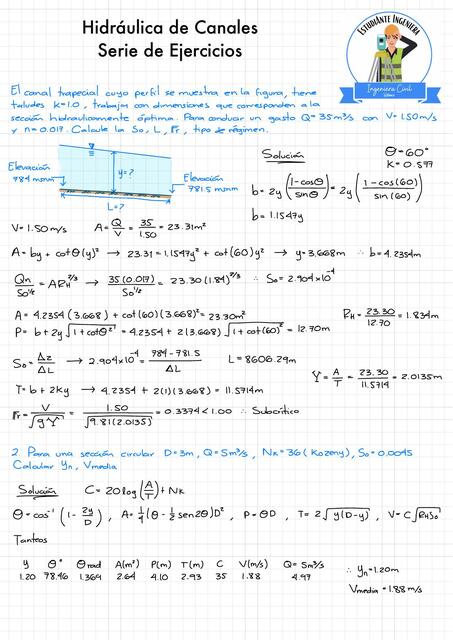 Hidráulica de Canales
Serie de Ejercicios
ESTUDIANTE INGENIERA
Ingeniera Civil
El canal trapecial cuyo perfil se muestra en la figura, tiene
taludes k=1.0, trabaja con dimensiones que corresponden a la
sección hidraulicamente óptima. Para conducir un gasto Q=35m³/s con V=1.50m/s
y n=0.017. Calcule la So, L, Fr, tipo de régimen.
Elevación
784 msnm
y=?
L=?
Elevación
781.5 msnm
Solución
θ=60°
K=0.577
b=2y(1-cosθ/senθ)=2y(1-cos(60)/sen(60))
b=1.1547y
V=1.50 m/s A=Q/V=35/1.50=23.31m²
A=by+cotθ(y)² → 23.31=1.1547y²+cot(60)y² → y=3.668m ∴ b=4.2354m
Qn/So^1/2=ARH^2/3 → 35(0.017)/So^1/2=23.30(1.84)^2/3 ∴ So=2.904x10⁻⁴
A=4.2354(3.668)+cot(60)(3.668)²=23.30m²
P=b+2y√1+cotθ²=4.2354+2(3.668)√1+cot(60)²=12.70m
RH=23.30/12.70=1.834m
So=Δz/ΔL → 2.904x10⁻⁴=784-781.5/ΔL L=8606.29m
T=b+2ky → 4.2354+2(1)(3.668)=11.5714m
Y=A/T=23.30/11.5714=2.0135m
Fr=V/√gY=1.50/√9.81(2.0135)=0.3374<1.00 ∴ Subcrítico
2. Para una sección circular D=3m, Q=5m³/s, Nk=36(Kozeny), So=0.0045
Calcular Yn, Vmedia
Solución C=20log(A/T)+Nk
θ=cos⁻¹(1-2y/D), A=1/4(θ-1/2sen2θ)D², P=θD, T=2√y(D-y), V=C√RHSo
Tanteos
y θ° θrad A(m²) P(m) T(m) C V(m/s) Q=5m³/s
1.20 78.46 1.369 2.64 4.10 2.93 35 1.88 4.97
∴ yn=1.20m
Vmedia=1.88m/s